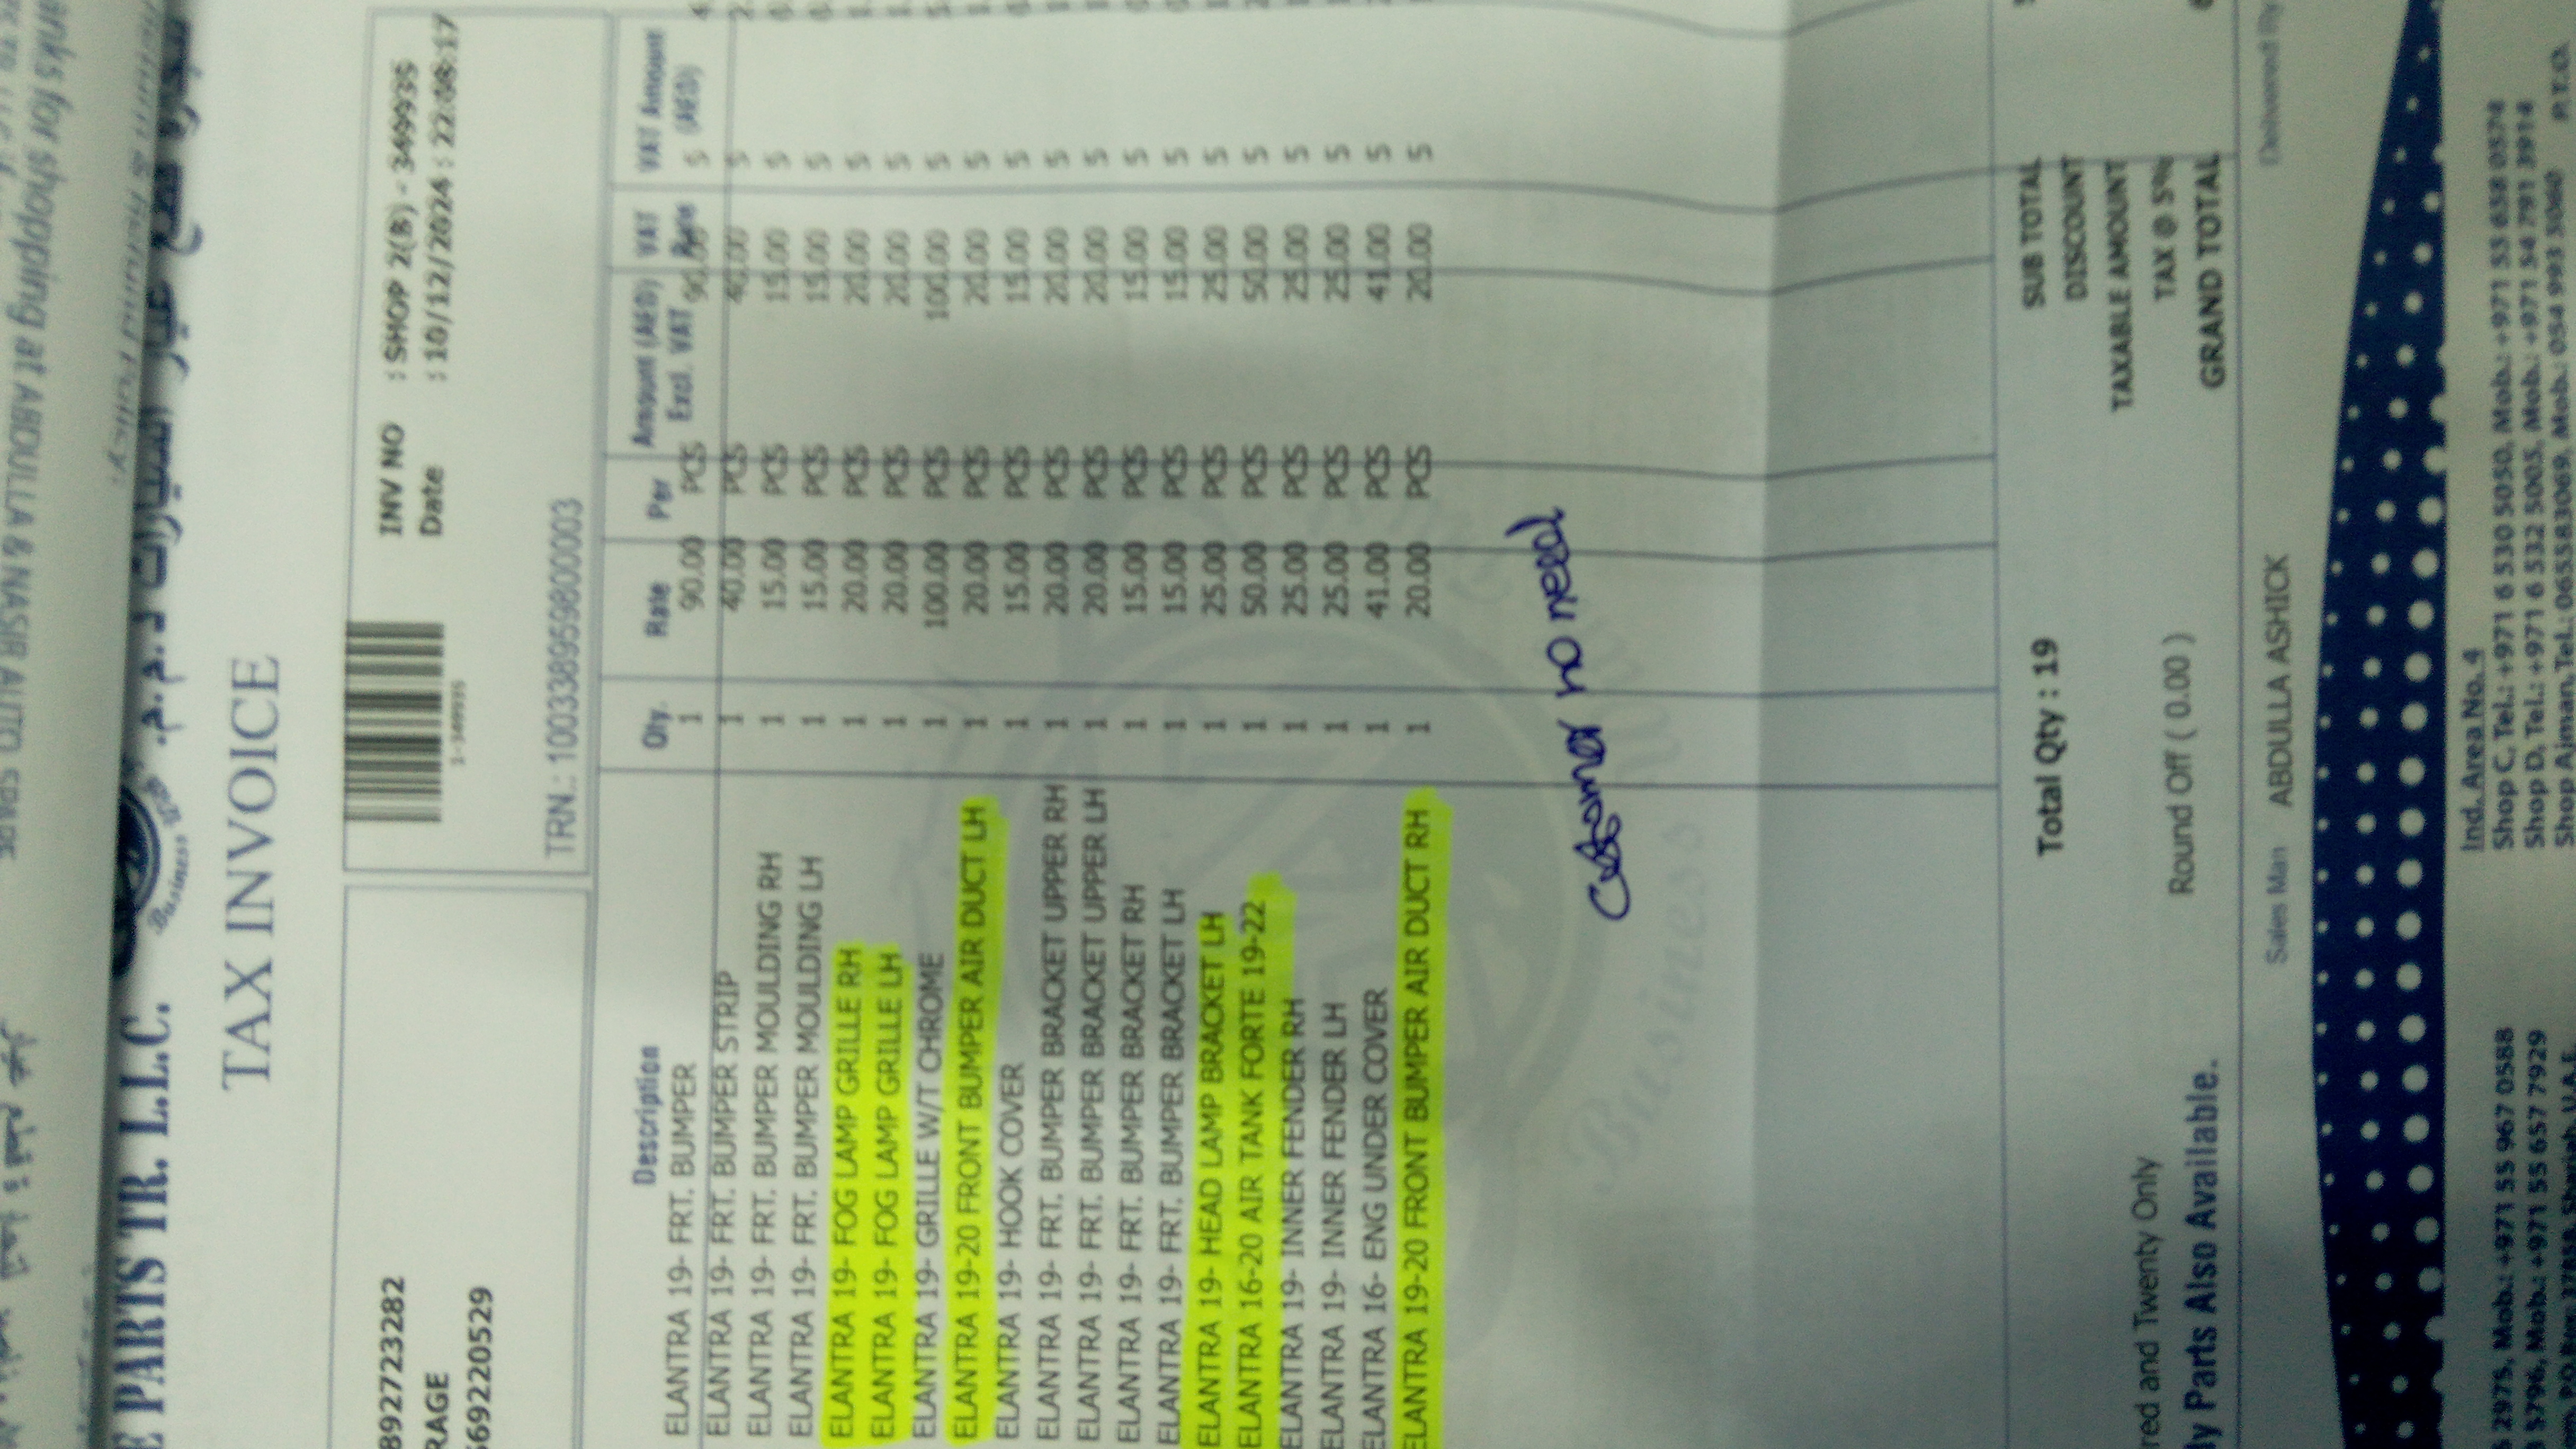 E PARTS TR. L.L.C.
TAX INVOICE
8927723282
RAGE
56922205​29
1-349935
INV NO : SHOP 2(B) - 349935
Date : 10/12/2024 : 22:08:17
TRN.: 100338959800003
Description Qty. Rate Per Amount (AED) Excl. VAT VAT Rate VAT Amount (AED)
ELANTRA 19- FRT. BUMPER 1 90.00 PCS 90.00 5
ELANTRA 19- FRT. BUMPER STRIP 1 40.00 PCS 40.00 5
ELANTRA 19- FRT. BUMPER MOULDING RH 1 15.00 PCS 15.00 5
ELANTRA 19- FRT. BUMPER MOULDING LH 1 15.00 PCS 15.00 5
ELANTRA 19- FOG LAMP GRILLE RH 1 20.00 PCS 20.00 5
ELANTRA 19- FOG LAMP GRILLE LH 1 20.00 PCS 20.00 5
ELANTRA 19- GRILLE W/T CHROME 1 100.00 PCS 100.00 5
ELANTRA 19-20 FRONT BUMPER AIR DUCT LH 1 20.00 PCS 20.00 5
ELANTRA 19- HOOK COVER 1 15.00 PCS 15.00 5
ELANTRA 19- FRT. BUMPER BRACKET UPPER RH 1 20.00 PCS 20.00 5
ELANTRA 19- FRT. BUMPER BRACKET UPPER LH 1 20.00 PCS 20.00 5
ELANTRA 19- FRT. BUMPER BRACKET RH 1 15.00 PCS 15.00 5
ELANTRA 19- FRT. BUMPER BRACKET LH 1 15.00 PCS 15.00 5
ELANTRA 19- HEAD LAMP BRACKET LH 1 25.00 PCS 25.00 5
ELANTRA 16-20 AIR TANK FORTE 19-22 1 50.00 PCS 50.00 5
ELANTRA 19- INNER FENDER RH 1 25.00 PCS 25.00 5
ELANTRA 19- INNER FENDER LH 1 25.00 PCS 25.00 5
ELANTRA 16- ENG UNDER COVER 1 41.00 PCS 41.00 5
ELANTRA 19-20 FRONT BUMPER AIR DUCT RH 1 20.00 PCS 20.00 5
Customer no need
Business
Total Qty : 19
SUB TOTAL
DISCOUNT
TAXABLE AMOUNT
red and Twenty Only
TAX @ 5%
Round Off ( 0.00 )
GRAND TOTAL
ly Parts Also Available.
Sales Man ABDULLA ASHICK
Delivered By
Ind. Area No. 4
2975, Mob.: +971 55 967 0588
Shop C, Tel.: +971 6 530 5050, Mob.: +971 55 658 0574
5796, Mob.: +971 55 657 7929
Shop D, Tel.: +971 6 532 5005, Mob.: +971 54 791 3914
Shop Ajman, Tel.: 065583069, Mob.: 054 993 5060
P.T.O.